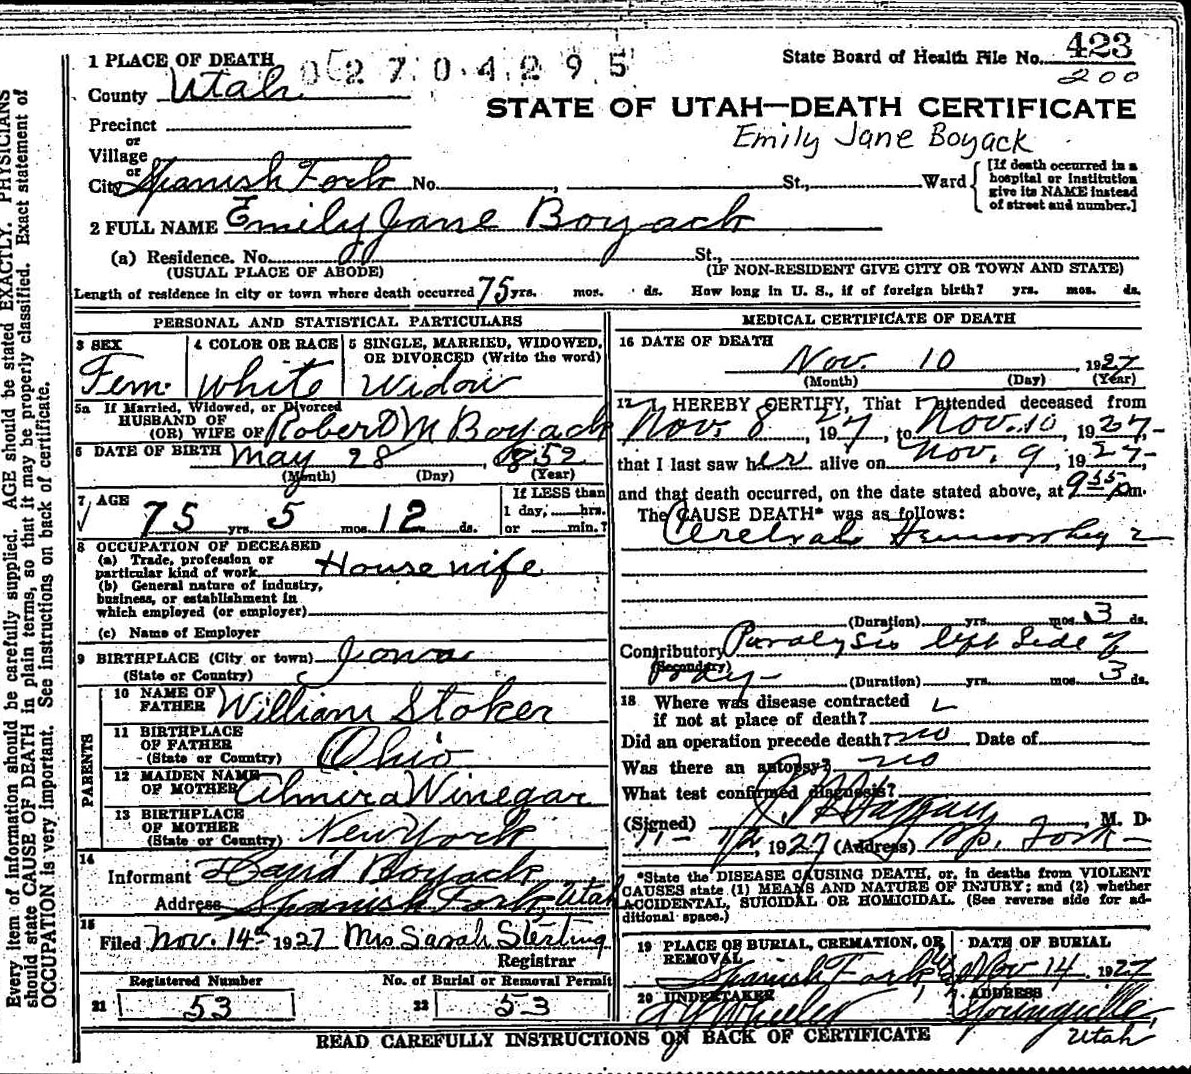 1 PLACE OF DEATH 02704295
State Board of Health File No. 423
200
County Utah
STATE OF UTAH—DEATH CERTIFICATE
Emily Jane Boyack
Precinct
or
Village
or
City Spanish Fork No. , St., Ward
[If death occurred in a hospital or institution give its NAME instead of street and number.]
2 FULL NAME Emily Jane Boyack
(a) Residence. No. St.,
(USUAL PLACE OF ABODE) (IF NON-RESIDENT GIVE CITY OR TOWN AND STATE)
Length of residence in city or town where death occurred 75 yrs. mos. ds. How long in U. S., if of foreign birth? yrs. mos. ds.
PERSONAL AND STATISTICAL PARTICULARS
3 SEX 4 COLOR OR RACE 5 SINGLE, MARRIED, WIDOWED, OR DIVORCED (Write the word)
Fem. White Widow
5a If Married, Widowed, or Divorced
HUSBAND OF
(OR) WIFE OF Robert M Boyack
6 DATE OF BIRTH May 28, 1852
(Month) (Day) (Year)
7 AGE If LESS than
75 yrs. 5 mos. 12 ds. 1 day, hrs.
or min.?
8 OCCUPATION OF DECEASED
(a) Trade, profession or
particular kind of work Housewife
(b) General nature of industry,
business, or establishment in
which employed (or employer)
(c) Name of Employer
9 BIRTHPLACE (City or town) Iowa
(State or Country)
PARENTS
10 NAME OF FATHER William Stoker
11 BIRTHPLACE OF FATHER (State or Country) Ohio
12 MAIDEN NAME OF MOTHER Almira Winegar
13 BIRTHPLACE OF MOTHER (State or Country) New York
14
Informant David Boyack
Address Spanish Fork, Utah
15
Filed Nov. 14th 1927 Mrs Sarah Sterling
Registrar
Registered Number No. of Burial or Removal Permit
21 53 22 53
MEDICAL CERTIFICATE OF DEATH
16 DATE OF DEATH
Nov. 10, 1927
(Month) (Day) (Year)
17 I HEREBY CERTIFY, That I attended deceased from
Nov. 8, 1927, to Nov. 10, 1927,
that I last saw her alive on Nov. 9, 1927,
and that death occurred, on the date stated above, at 9 55 pm.
The CAUSE DEATH* was as follows:
Cerebral
(Duration) yrs. mos. 3 ds.
Contributory Paralysis left side of
(Secondary) body
(Duration) yrs. mos. 3 ds.
18 Where was disease contracted
if not at place of death?
Did an operation precede death? no Date of
Was there an autopsy? no
What test confirmed diagnosis?
(Signed) , M. D.
11-12, 1927 (Address) Sp. Fork
*State the DISEASE CAUSING DEATH, or, in deaths from VIOLENT
CAUSES state (1) MEANS AND NATURE OF INJURY; and (2) whether
ACCIDENTAL, SUICIDAL OR HOMICIDAL. (See reverse side for ad-
ditional space.)
19 PLACE OF BURIAL, CREMATION, OR REMOVAL DATE OF BURIAL
Spanish Fork Nov 14 1927
20 UNDERTAKER ADDRESS
Wheeler Springville,
Utah
READ CAREFULLY INSTRUCTIONS ON BACK OF CERTIFICATE
Every item of information should be carefully supplied. AGE should be stated EXACTLY. PHYSICIANS
should state CAUSE OF DEATH in plain terms, so that it may be properly classified. Exact statement of
OCCUPATION is very important. See instructions on back of certificate.